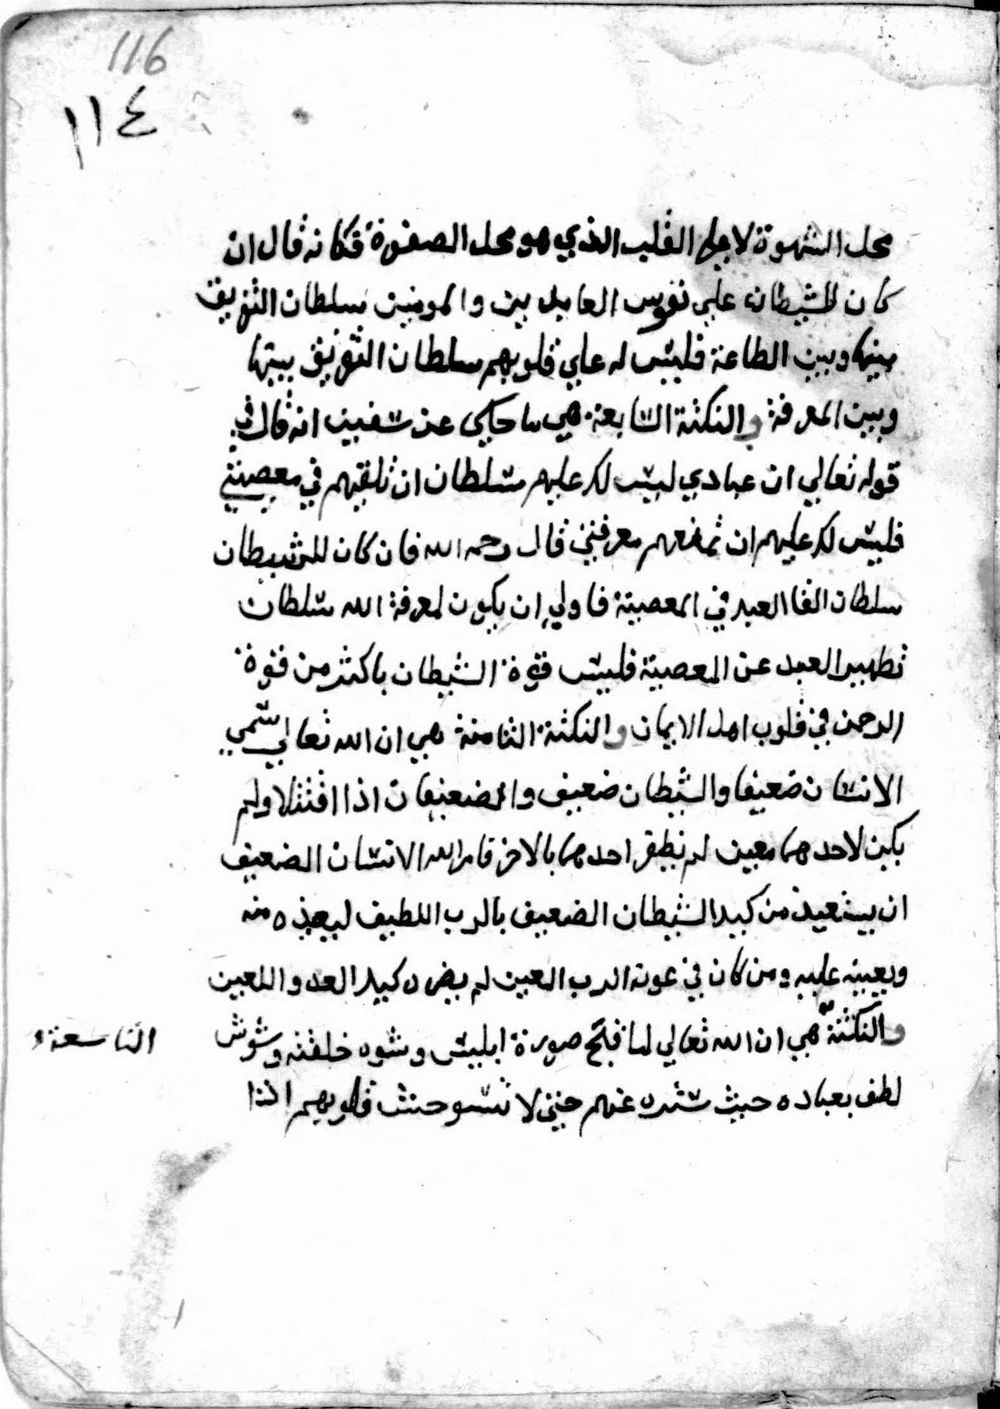 116
١١٤
محل الشهوة لا علي القلب الذي هو محل الصفوة فكانه قال ان
كان للشيطان علي نفوس العابدين والمومنين سلطان التفريق
بينها وبين الطاعة فليس له علي قلوبهم سلطان التفريق بينها
وبين المعرفة والنكتة السابعة هي ما حكي عن سفين انه قال في
قوله تعالي ان عبادي ليس لك عليهم سلطان ان تلقيهم في معصيتي
فليس لك عليهم ان تمنعهم معرفتي قال رحمه الله فان كان للشيطان
سلطان القا العبد في المعصية فاولي ان يكون لمعرفة الله سلطان
تطهير العبد عن المعصية فليس قوة الشيطان باكثر من قوة
الرحمن في قلوب اهل الايمان والنكتة الثامنة هي ان الله تعالي سمي
الانسان ضعيفا والشيطان ضعيف والضعيفان اذا اقتتلا ولم
يكن لاحدهما معين لم يظفر احدهما بالاخر فامر الله الانسان الضعيف
ان يستعيذ من كيد الشيطان الضعيف بالرب اللطيف ليعيذه منه
ويعينه عليه ومن كان في عونه الرب المعين لم يضره كيد العدو اللعين
والنكتة هي ان الله تعالي لما قبح صورة ابليس وشوه خلقته وشوش
التاسعة
لطف بعباده حيث ستره عنهم حتي لا تستوحش قلوبهم اذا